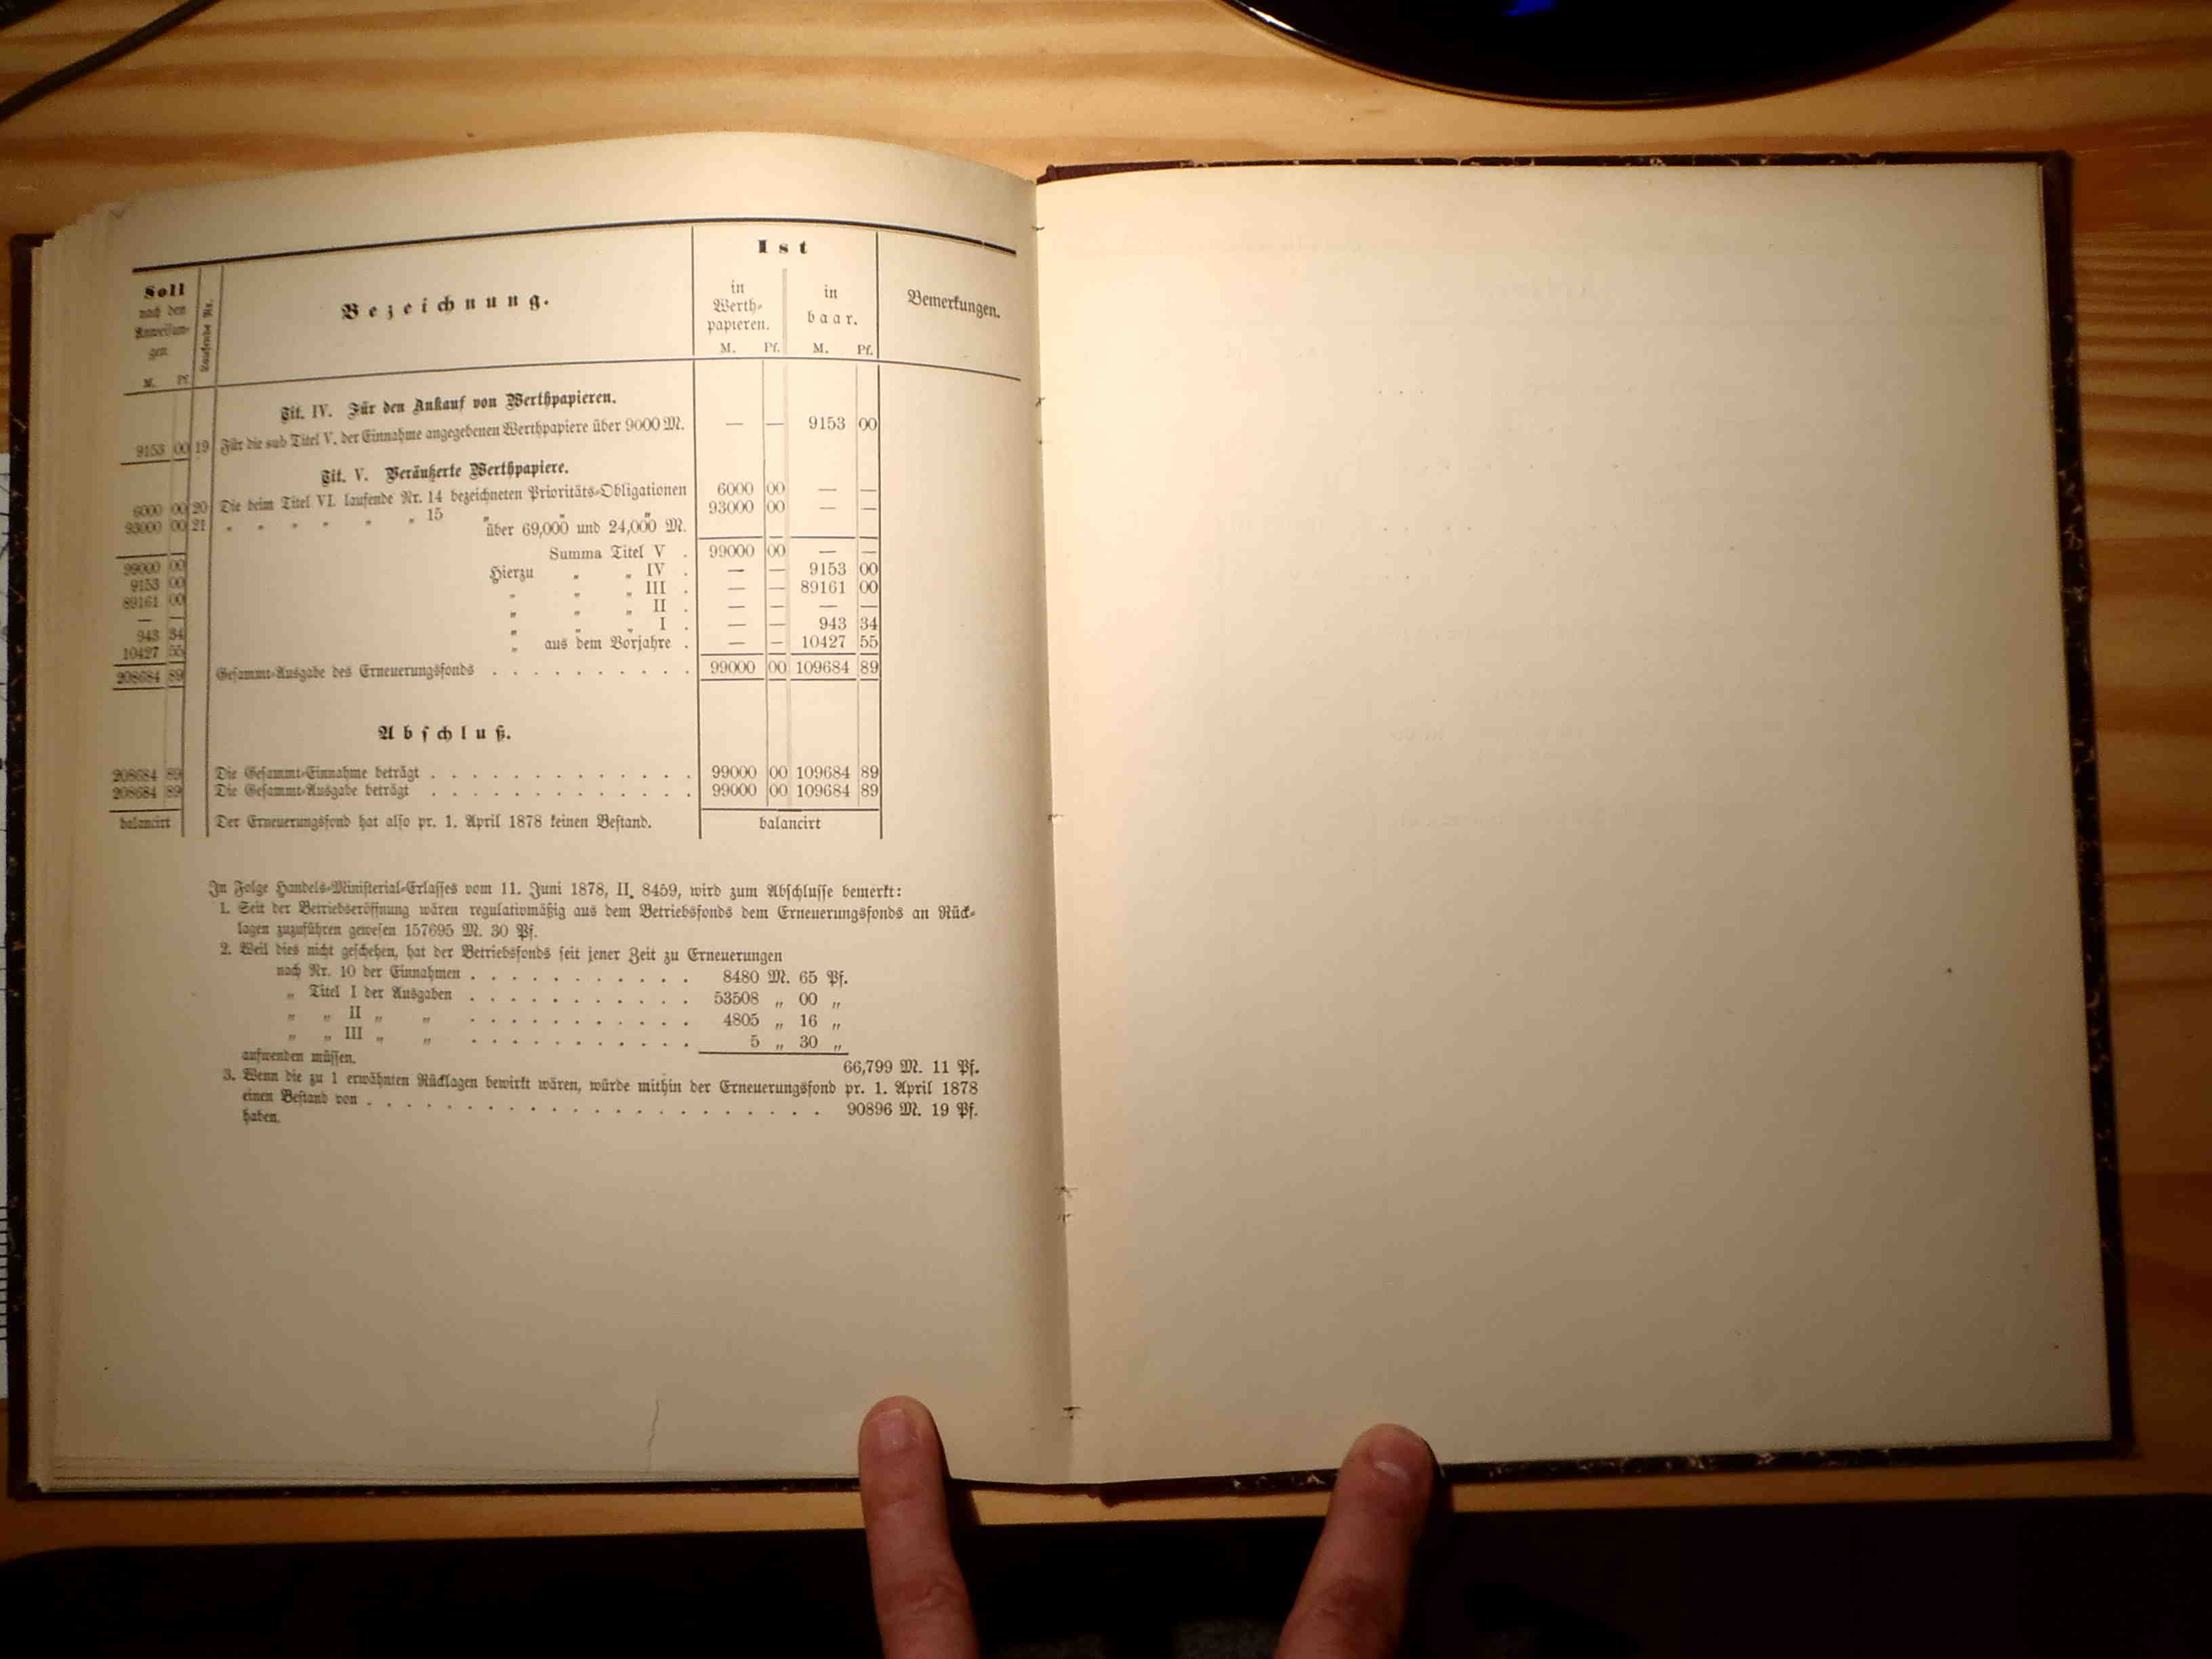 Soll
nach den
Anweisun-
gen
M. Pf.
Laufende Nr.
Bezeichnung.
Ist
in
Werth-
papieren.
M. Pf.
in
baar.
M. Pf.
Bemerkungen.
Tit. IV. Für den Ankauf von Werthpapieren.
9153 00 19 Für die sub Titel V. der Einnahme angegebenen Werthpapiere über 9000 M. — — 9153 00
Tit. V. Veräußerte Werthpapiere.
6000 00 20 Die beim Titel VI. laufende Nr. 14 bezeichneten Prioritäts-Obligationen 6000 00 — —
93000 00 21 „ „ „ „ „ „ 15 „ „ „ 93000 00 — —
über 69,000 und 24,000 M.
99000 00 Summa Titel V . 99000 00 — —
9153 00 Hierzu „ „ IV . — — 9153 00
89161 00 „ „ „ III . — — 89161 00
— — „ „ „ II . — — — —
943 34 „ „ „ I . — — 943 34
10427 55 „ aus dem Vorjahre . — — 10427 55
208684 89 Gesammt-Ausgabe des Erneuerungsfonds . . . . . . . . . . 99000 00 109684 89
Abschluß.
208684 89 Die Gesammt-Einnahme beträgt . . . . . . . . . . . . . 99000 00 109684 89
208684 89 Die Gesammt-Ausgabe beträgt . . . . . . . . . . . . . 99000 00 109684 89
balancirt Der Erneuerungsfond hat also pr. 1. April 1878 keinen Bestand. balancirt
In Folge Handels-Ministerial-Erlasses vom 11. Juni 1878, II. 8459, wird zum Abschlusse bemerkt:
1. Seit der Betriebseröffnung wären regulativmäßig aus dem Betriebsfonds dem Erneuerungsfonds an Rück-
lagen zuzuführen gewesen 157695 M. 30 Pf.
2. Weil dies nicht geschehen, hat der Betriebsfonds seit jener Zeit zu Erneuerungen
nach Nr. 10 der Einnahmen . . . . . . . . . . . 8480 M. 65 Pf.
„ Titel I der Ausgaben . . . . . . . . . . . 53508 „ 00 „
„ „ II „ „ . . . . . . . . . . . 4805 „ 16 „
„ „ III „ „ . . . . . . . . . . . 5 „ 30 „
aufwenden müssen. 66,799 M. 11 Pf.
3. Wenn die zu 1 erwähnten Rücklagen bewirkt wären, würde mithin der Erneuerungsfond pr. 1. April 1878
einen Bestand von . . . . . . . . . . . . . . . . . . . . . . 90896 M. 19 Pf.
haben.